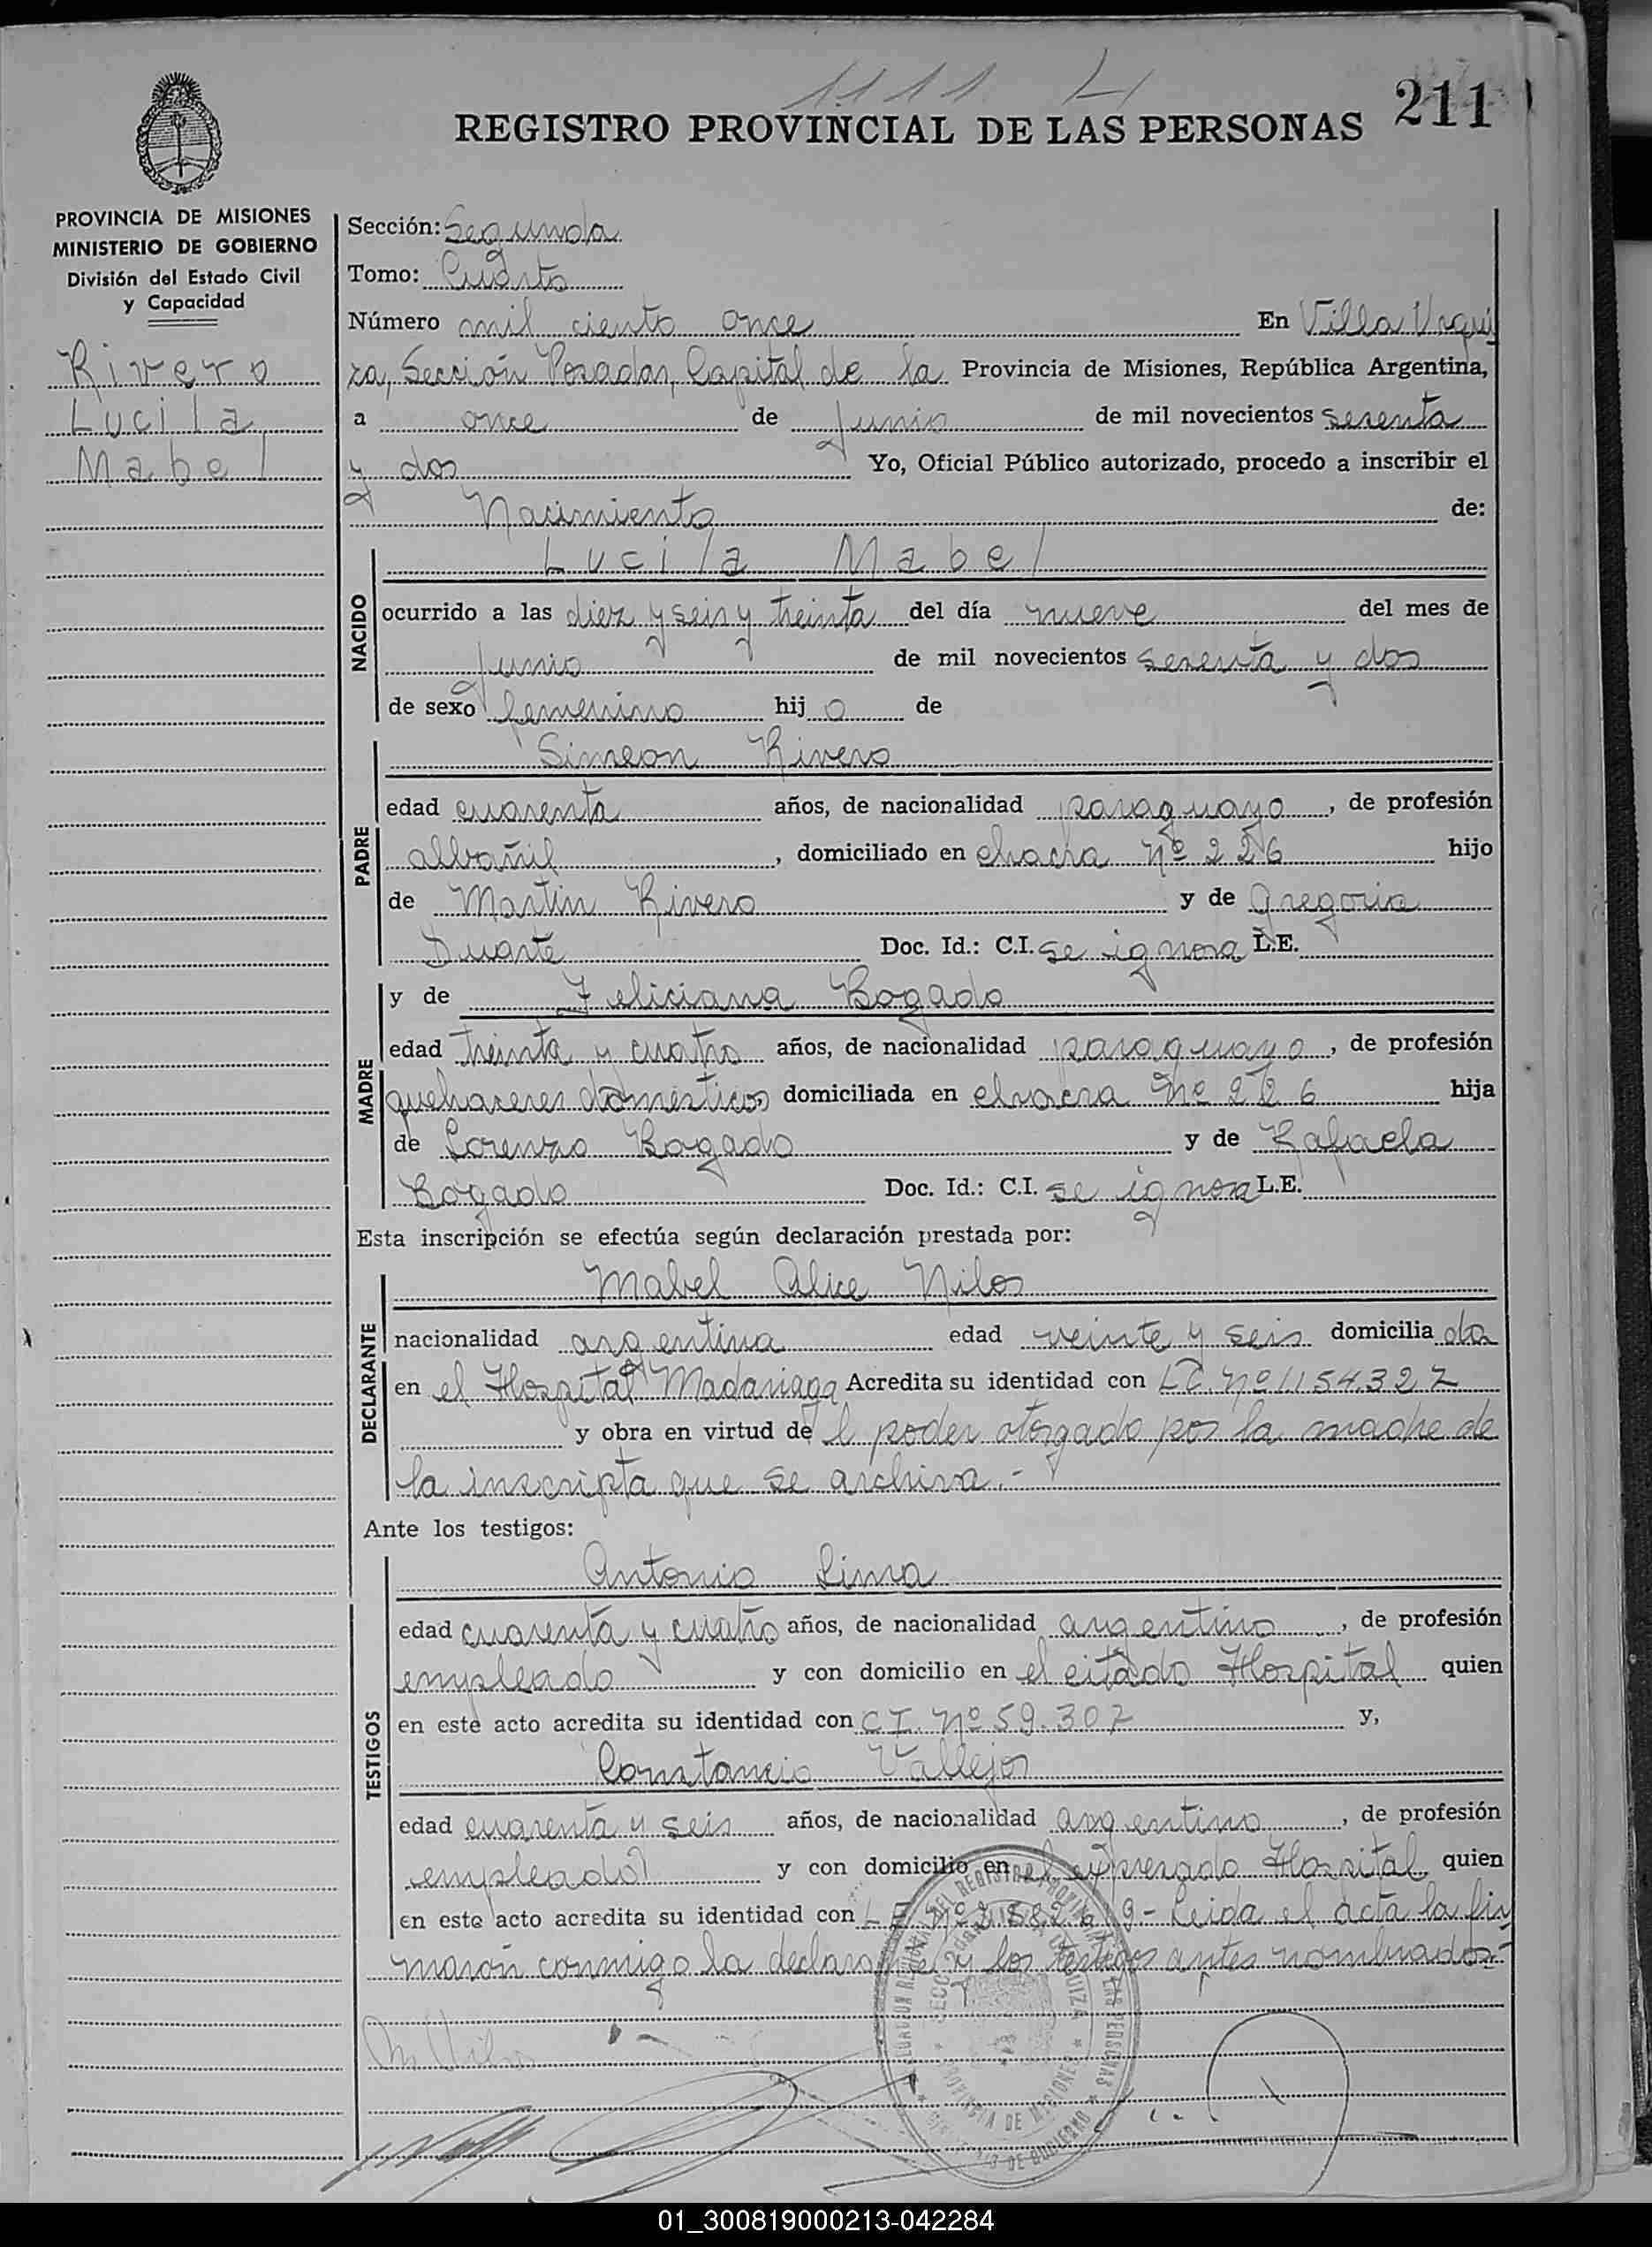 1111
211
REGISTRO PROVINCIAL DE LAS PERSONAS
PROVINCIA DE MISIONES
MINISTERIO DE GOBIERNO
División del Estado Civil
y Capacidad
Rivero
Lucila
Mabel
Sección: Segunda
Tomo: Cuarto
Número mil ciento once En Villa Urqui
za, Sección Posadas, Capital de la Provincia de Misiones, República Argentina,
a once de Junio de mil novecientos sesenta
y dos Yo, Oficial Público autorizado, procedo a inscribir el
Nacimiento de:
NACIDO
Lucila Mabel
ocurrido a las diez y seis y treinta del día nueve del mes de
Junio de mil novecientos sesenta y dos
de sexo femenino hij o de
PADRE
Simeon Rivero
edad cuarenta años, de nacionalidad paraguayo, de profesión
albañil, domiciliado en chacra Nº 226 hijo
de Martin Rivero y de Gregoria
Duarte Doc. Id.: C.I. se ignora L.E.
MADRE
y de Feliciana Bogado
edad treinta y cuatro años, de nacionalidad paraguaya, de profesión
quehaceres domesticos domiciliada en chacra Nº 226 hija
de Lorenzo Bogado y de Rafaela
Bogado Doc. Id.: C.I. se ignora L.E.
Esta inscripción se efectúa según declaración prestada por:
DECLARANTE
Mabel Alice Nilos
nacionalidad argentina edad veinte y seis domicilia da
en el Hospital Madariaga Acredita su identidad con L.C. Nº 1.154.327
y obra en virtud de l poder otorgado por la madre de
la inscripta que se archiva.-
Ante los testigos:
TESTIGOS
Antonio Lima
edad cuarenta y cuatro años, de nacionalidad argentino, de profesión
empleado y con domicilio en el citado Hospital quien
en este acto acredita su identidad con C.I. Nº 59.307 y,
Constancio Vallejos
edad cuarenta y seis años, de nacionalidad argentino, de profesión
empleado y con domicilio en el expresado Hospital quien
en este acto acredita su identidad con Leida el acta la fir
maron conmigo la declarante y los testigos antes nombrados.-
PROVINCIA DE MISIONES
01_300819000213-042284